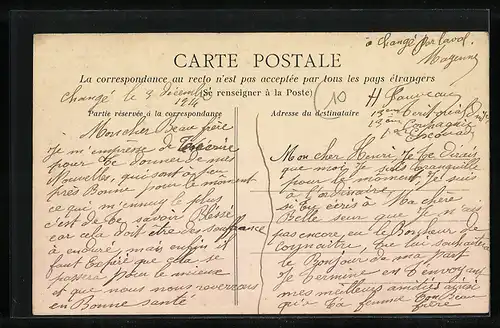 à Changé par Laval.
Mayenne
CARTE POSTALE
La correspondance au recto n'est pas acceptée par tous les pays étrangers
(Se renseigner à la Poste)
Changé le 3 décembre
1914
10
Partie réservée à la correspondance
Adresse du destinataire
H
13ème
Compagnie
Mon cher Beau frère
je m'emprèsse de
pour te donner de mes
Nouvelles, qui sont à peu
près Bonne pour le moment
ce qui m'ennuy le plus
c'est de te savoir Blessé
car cela doit être des souffrance
à enduré, mais enfin il
faut Espéré que cela se
passera pour le mieux
et que nous nous reverrons
en Bonne santé
Mon cher Henri je te dirais
que moi je suis tranquille
pour le moment, je suis
à l'ordinaire,
si tu écris à Ma chère
Belle sœur que je n'ai
pas encore eu le Bonheur de
connaitre, tu lui souhaitera
le Bonjour de ma part
je termine en t'envoyant
mes meilleurs amitiés ainsi
qu'à ta femme Ton Beau
frère